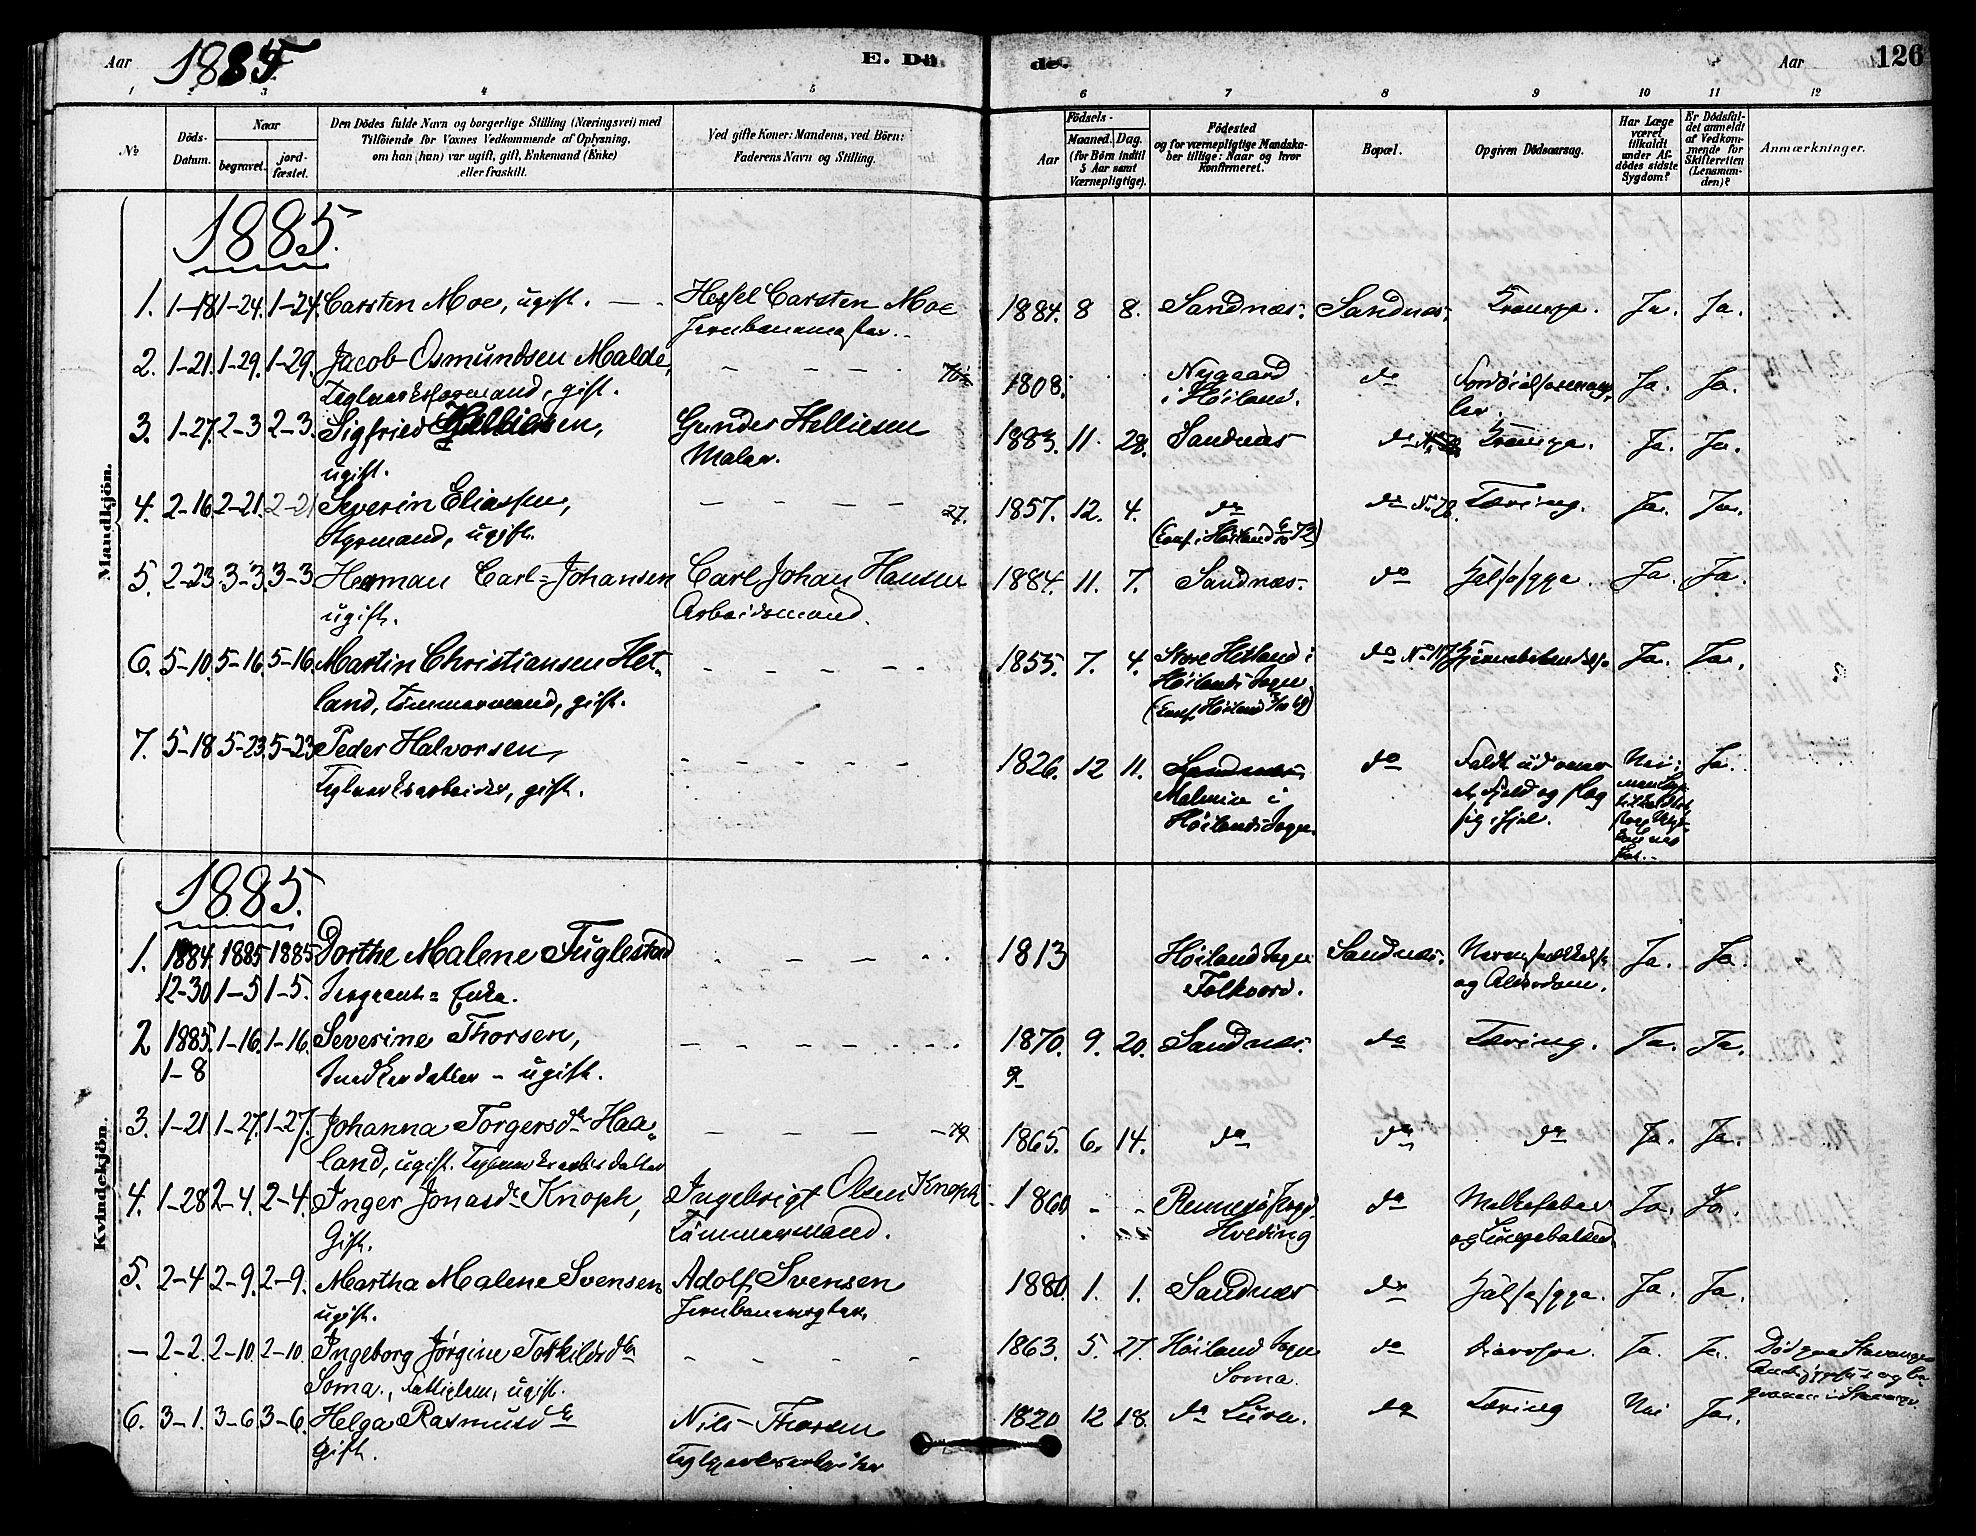 Aar 1885 E. Dö de. Aar 126
1 2 3 4 5 6 7 8 9 10 11 12
No
Döds-Datum.
Naar
begravet.
jordfæstet.
Den Dödes fulde Navn og borgerlige Stilling (Næringsvei) med
Tilföiende for Voxnes Vedkommende af Oplysning,
om han (hun) var ugift, gift, Enkemand (Enke)
eller fraskilt.
Ved gifte Koner: Mandens, ved Börn:
Faderens Navn og Stilling.
Födsels-
Aar
Maaned. Dag.
(for Börn indtil
5 Aar samt
Værnepligtige).
Födested
og for værnepligtige Mandskaber tillige: Naar og hvor
konfirmeret.
Bopæl.
Opgiven Dödsaarsag.
Har Læge
været
tilkaldt
under Afdödes sidste
Sygdom?
Er Dödsfaldet anmeldt
af Vedkommende for
Skifteretten
(Lensmanden)?
Anmærkninger.
Mandkjön.
1885.
1. 1-18 1-24. 1-24. Carsten Moe, ugift. Carsten Moe 1884. 8 8. Sandnæs. Sandnæs. Ja. Ja.
Jernbanemester.
2. 1-21. 1-29. 1-29. Jacob Osmundsen Malde, 1808. Nygaard do Ja. Ja.
gift. i Höiland.
3. 1-27. 2-3 2-3. Sigfried Helliesen, Gunder Helliesen 1883. 11. 28. Sandnæs do Ja. Ja.
ugift. Maler.
4. 2-16. 2-21. 2-21 Severin Eliassen, 27. 1857. 12. 4. do do No 78. Tæring. Ja. Ja.
Styrmand, ugift. (Conf. i Höiland 6/10 72)
5. 2-23. 3-3. 3-3 Herman Carl Johansen Carl Johan Hansen 1884. 11. 7. Sandnæs. do Halssyge. Ja. Ja.
ugift. Arbeidsmand.
6. 5-10. 5-16. 5-16. Martin Christiansen Het- 1855. 7. 4. Store Hetland i do Ja. Ja.
land, Tömmermand, gift. Höilands Sogn
7. 5-18 5-23. 5-23 Peder Halvorsen, 1826. 12 11. Sandnæs. do Faldt ud over Nei; Ja.
Teglværksarbeider, gift. i et Fjeld og slog
Höilands Sogn. sig ihjel.
Kvindekjön.
1885.
1. 1884. 1885 1885 Dorthe Malene Fuglestad 1813 Höiland Sogn Sandnæs. Ja. Ja.
12-30 1-5 1-5. Sergeant-Enke. Folkvord. og Alderdom.
2 1885. 1-16. 1-16. Severine Thorsen, 1870. 9. 20. Sandnæs. do Tæring. Ja. Ja.
1-8 Snedkerdatter - ugift.
3. 1-21 1-27. 1-27. Johanna Torgersdr Haa- 1865. 6. 14. do do do Ja. Ja.
land, ugift.
4. 1-28 2-4. 2-4. Inger Jonasdr Knoph, Ingebrigt Olsen Knoph 1860 Rennesö do Melkefeber Ja. Ja.
Gift. Tömmermand. Hviding
5. 2-4 2-9. 2-9. Martha Malene Svensen Adolf Svensen 1880. 1. 1. Sandnæs do Halssyge. Ja. Ja.
ugift.
- 2-2. 2-10. 2-10. Ingeborg Jørgine Torkildsdr 1863. 5. 27. Höiland Sogn do Ja. Ja. Död paa Stavanger
Soma., ugift. Soma.
6. 3-1. 3-6 3-6. Helga Rasmusdr Nils Thorsen 1820 12 18. do Lura. do Tæring Nei Ja.
Gift. Teglværksarbeider